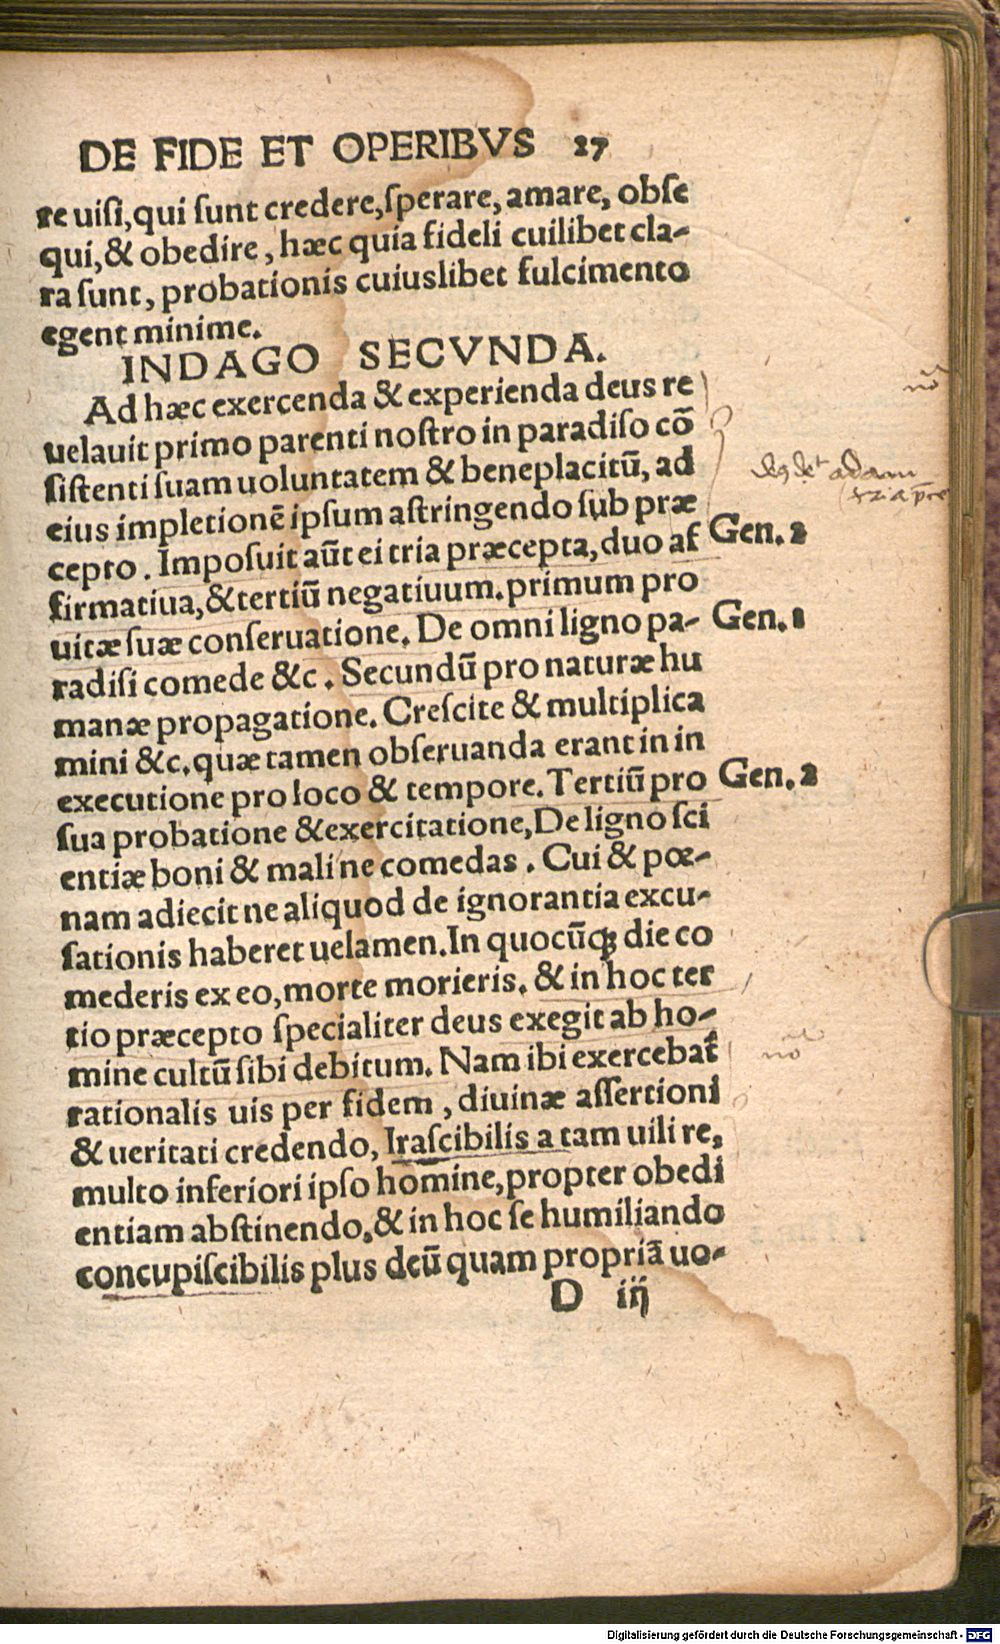 DE FIDE ET OPERIBVS 27
re uisi, qui sunt credere, sperare, amare, obse
qui, & obedire, hæc quia fideli cuilibet cla-
ra sunt, probationis cuiuslibet fulcimento
egent minime.
INDAGO SECVNDA.
Ad hæc exercenda & experienda deus re
uelauit primo parenti nostro in paradiso cõ
sistenti suam uoluntatem & beneplacitũ, ad
eius impletionẽ ipsum astringendo sub præ
cepto. Imposuit aũt ei tria præcepta, duo af
Gen. 2
firmatiua, & tertiũ negatiuum. primum pro
uitæ suæ conseruatione. De omni ligno pa-
Gen. 1
radisi comede &c. Secundũ pro naturæ hu
manæ propagatione. Crescite & multiplica
mini &c. quæ tamen obseruanda erant in in
executione pro loco & tempore. Tertiũ pro
Gen. 2
sua probatione & exercitatione, De ligno sci
entiæ boni & mali ne comedas. Cui & pœ-
nam adiecit ne aliquod de ignorantia excu-
sationis haberet uelamen. In quocũqꝫ die co
mederis ex eo, morte morieris. & in hoc ter
tio præcepto specialiter deus exegit ab ho-
mine cultũ sibi debitum. Nam ibi exercebat̃
rationalis uis per fidem, diuinæ assertioni
& ueritati credendo, Irascibilis a tam uili re,
multo inferiori ipso homine, propter obedi
entiam abstinendo, & in hoc se humiliando
concupiscibilis plus deũ quam propriã uo-
D iij
Digitalisierung gefördert durch die Deutsche Forschungsgemeinschaft - DFG